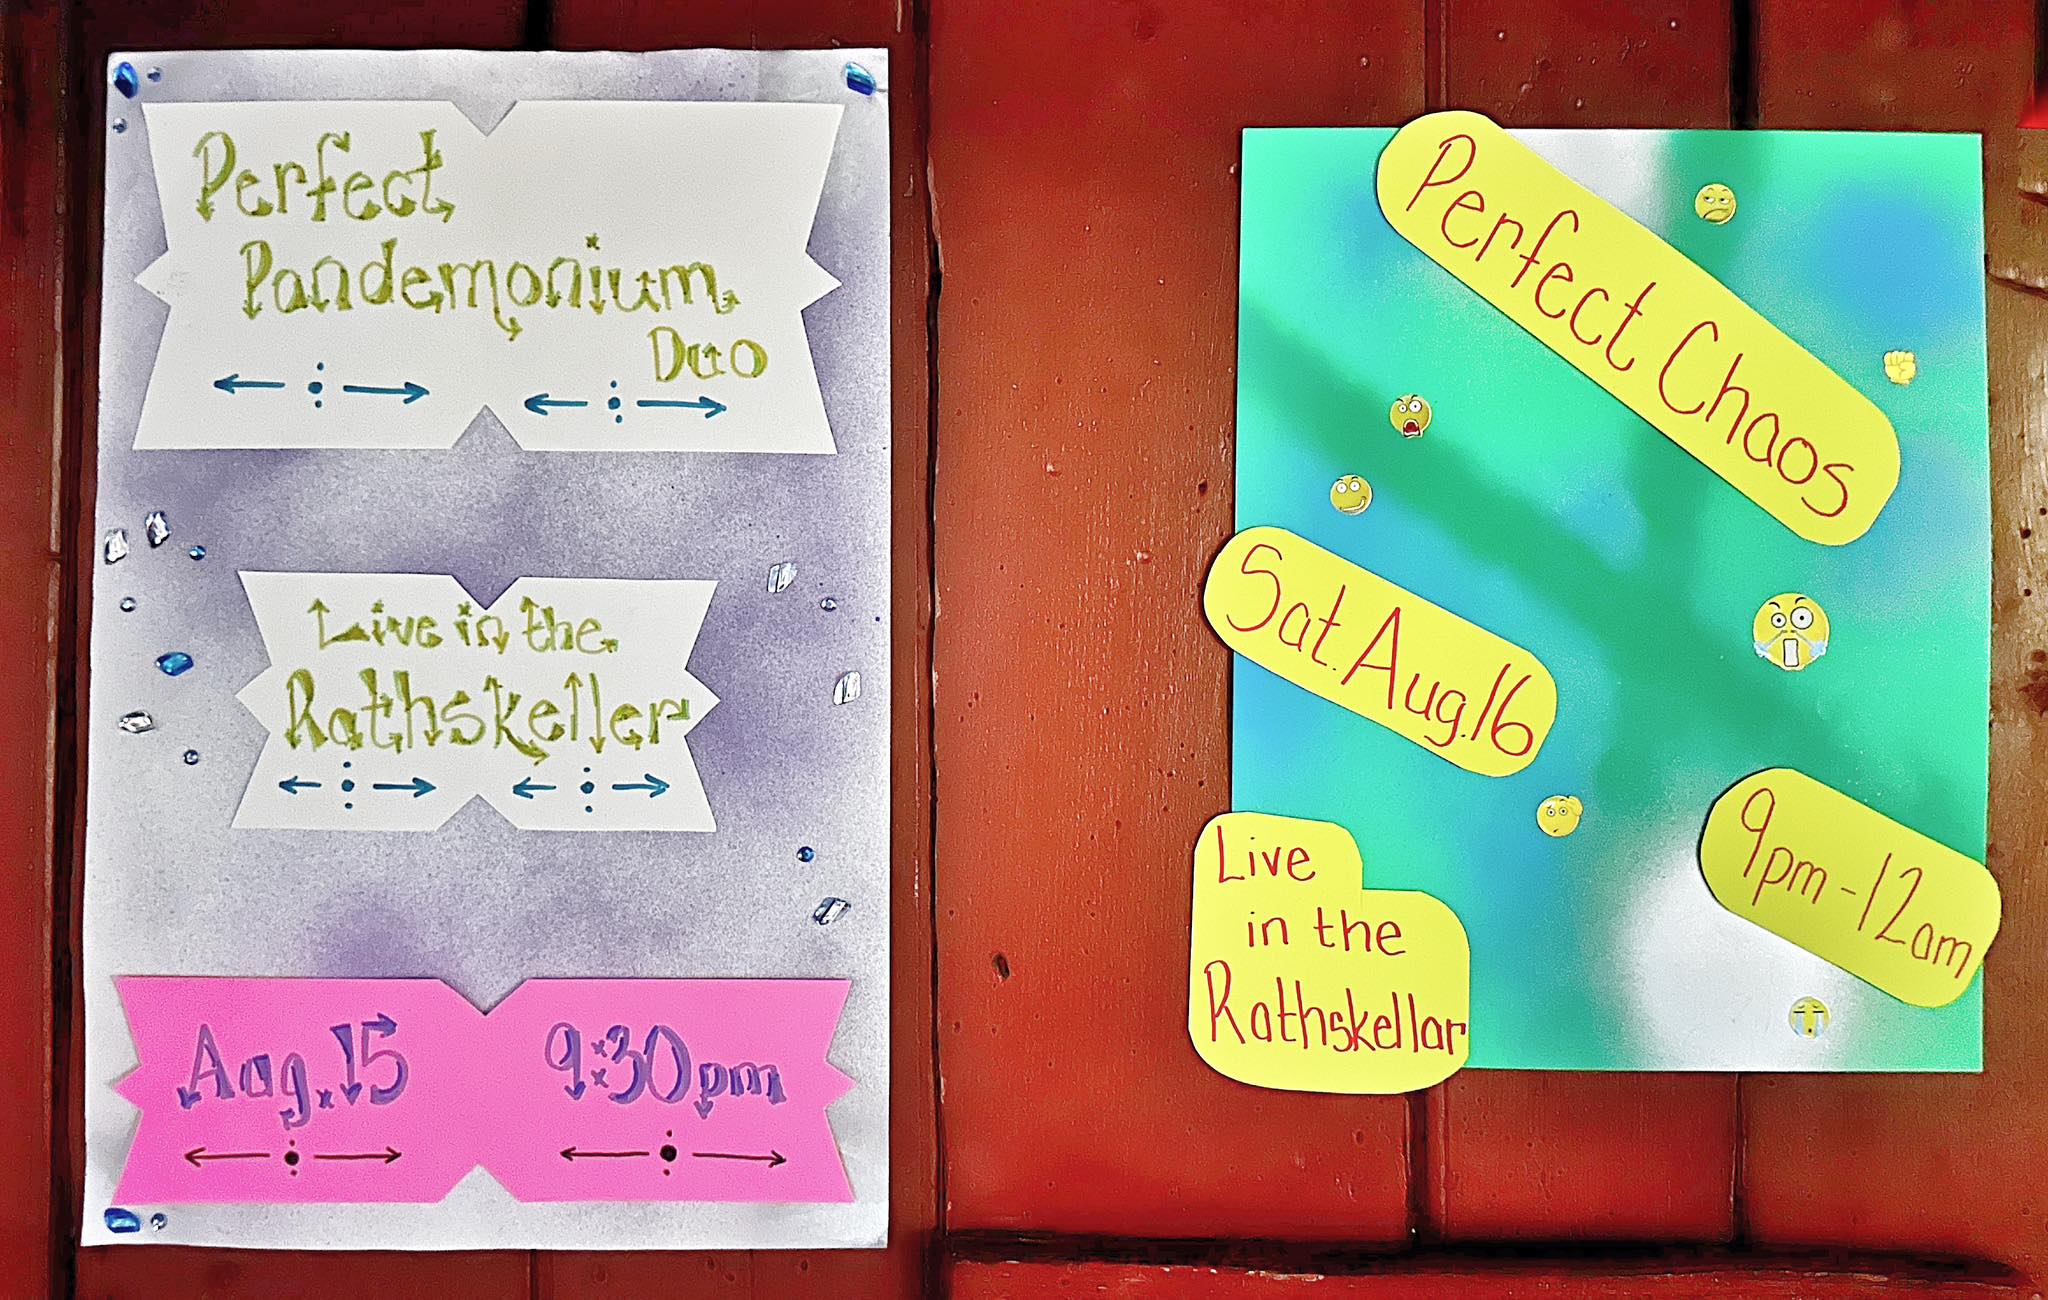 Perfect
Pandemonium
Duo
Live in the
Rathskeller
Aug. 15 9:30pm
Perfect Chaos
Sat. Aug. 16
9pm-12am
Live
in the
Rathskellar